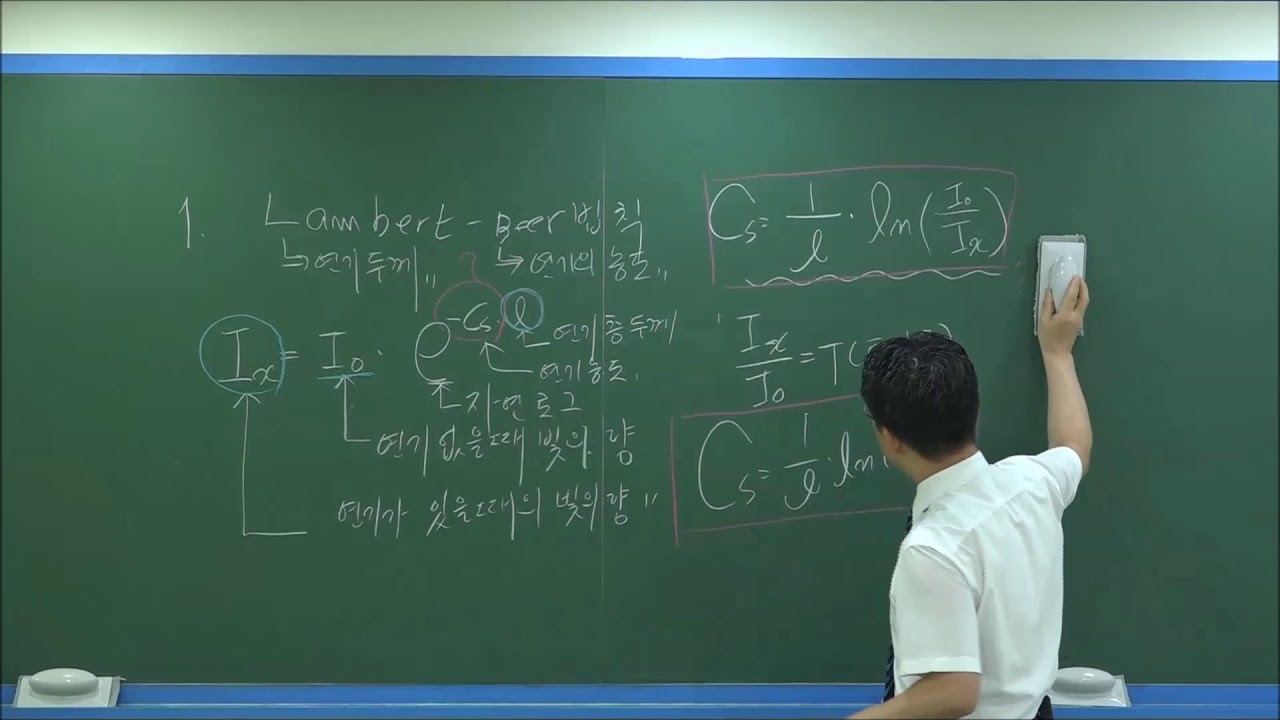 1. Lambert - Beer 법칙
↳연기두께〃 ↳연기의 농도〃
Iₓ = I₀ · e^(-Cs·l)
연기층두께
연기농도.
자연로그
연기없을때 빛의 양
연기가 있을때의 빛의 양〃
Cs = 1/l · ln(I₀/Iₓ)
Iₓ/I₀ = T(
Cs = 1/l · ln(